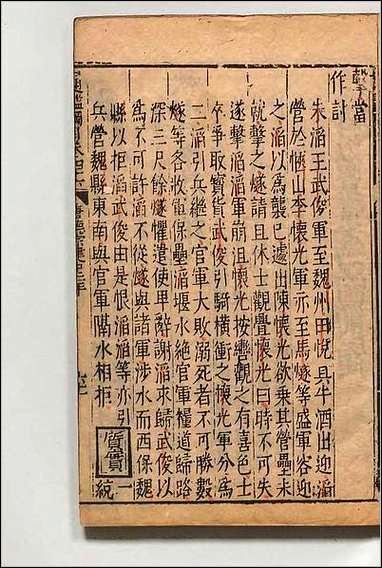 掣當
作討
朱滔王武俊軍至魏州田悅具牛酒出迎滔
營於愜山李懷光軍亦至馬燧等盛軍容迎
之滔以為襲已遽出陳懷光欲乘其營壘未
就擊之燧請且休士觀釁懷光曰時不可失
遂擊滔滔軍崩沮懷光按轡觀之有喜色士
卒爭取寶貨武俊引騎橫衝之懷光軍分為
二滔引兵繼之官軍大敗溺死者不可勝數
燧等各收軍保壘滔堰水絕官軍糧道歸路
深三尺餘燧懼遣使卑辭謝滔求歸武俊以
為不可許滔不從燧與諸軍涉水而西保魏
縣以拒滔武俊由是恨滔滔等亦引
兵營魏縣東南與官軍隔水相拒
質實
一
統